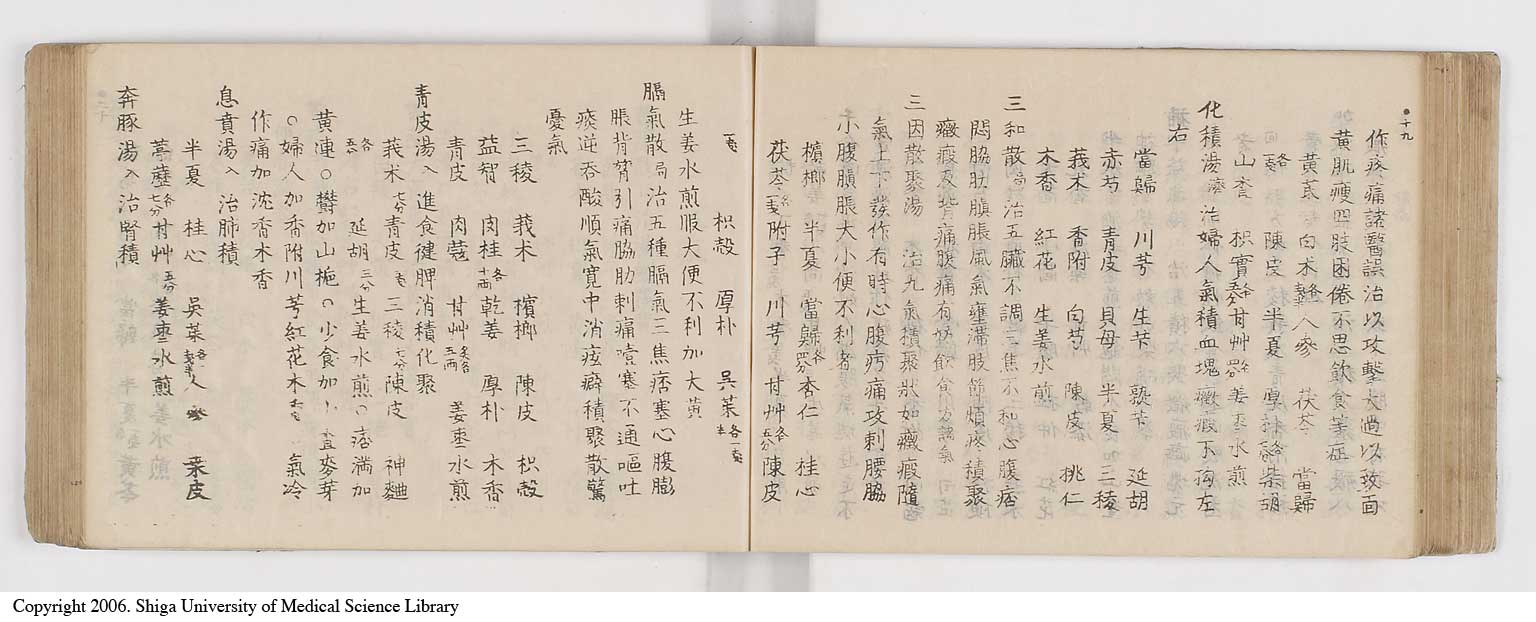 十九
作疼痛諸醫誤治以攻擊太過以致面
黃肌瘦四肢困倦不思飲食等症
黃芪 白朮 人參 茯苓 當歸
陳皮 半夏 厚朴 柴胡
山査 枳實 甘艸 姜棗水煎
化積湯 治婦人氣積血塊癥瘕下胸左
右
當歸 川芎 生芐 熟芐 延胡
赤芍 青皮 貝母 半夏 三稜
莪朮 香附 白芍 陳皮 桃仁
木香 紅花 生姜水煎
三和散 局 治五臟不調三焦不和心腹痞
悶脇肋䐜脹風氣壅滯肢節煩疼積聚
癥瘕及背痛腹痛有妨飲食
三因散聚湯 治九氣積聚狀如癥瘕隨
氣上下發作有時心腹㽲痛攻刺腰脇
小腹䐜脹大小便不利者
檳榔 半夏 當歸各 杏仁 桂心
茯苓 附子 川芎 甘艸 陳皮
枳殻 厚朴 吳茱
生姜水煎服大便不利加大黃
膈氣散 局 治五種膈氣三焦痞塞心腹膨
脹背膂引痛脇肋刺痛噎塞不通嘔吐
痰逆吞酸順氣寛中消痃癖積聚散驚
憂氣
三稜 莪朮 檳榔 陳皮 枳殻
益智 肉桂 乾姜 厚朴 木香
青皮 肉蔻 甘艸 姜棗水煎
青皮湯入 進食健脾消積化聚
莪朮七分 青皮 三稜七分 陳皮 神麯
各五分 延胡三分 生姜水煎○痞満加
黃連○欝加山梔○少食加山査麥芽
○婦人加香附川芎紅花木 氣冷
作痛加沈香木香
息賁湯入 治肺積
半夏 桂心 吳茱 人參 桑皮
葶藶各七分 甘艸五分 姜棗水煎
奔豚湯入 治腎積
Copyright 2006. Shiga University of Medical Science Library